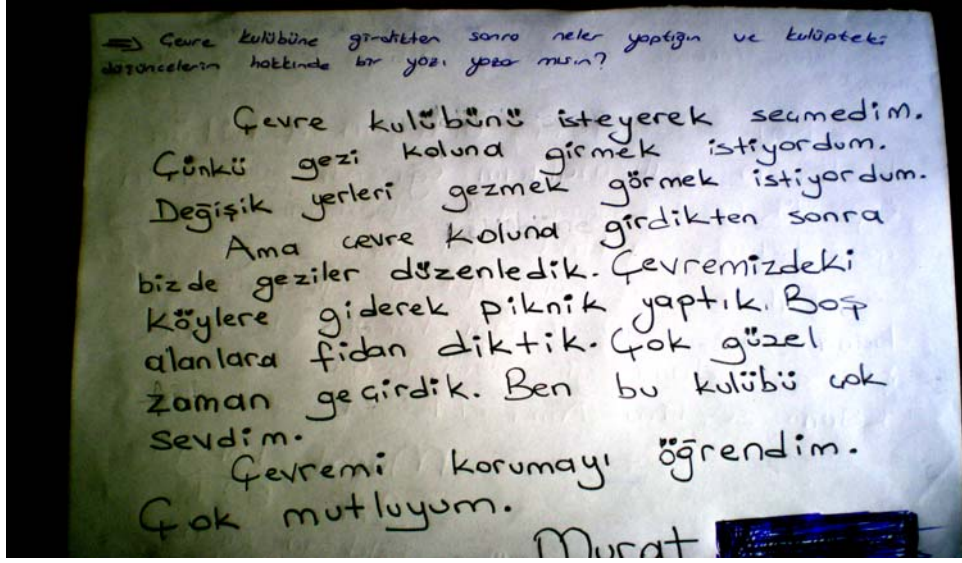 => Çevre kulübüne girdikten sonra neler yaptığın ve kulüpteki
düşüncelerin hakkında bir yazı yazar mısın?
Çevre kulübünü isteyerek seçmedim.
Çünkü gezi koluna girmek istiyordum.
Değişik yerleri gezmek görmek istiyordum.
Ama çevre koluna girdikten sonra
bizde geziler düzenledik. Çevremizdeki
köylere giderek piknik yaptık. Boş
alanlara fidan diktik. Çok güzel
zaman geçirdik. Ben bu kulübü çok
sevdim.
Çevremi korumayı öğrendim.
Çok mutluyum.
Murat